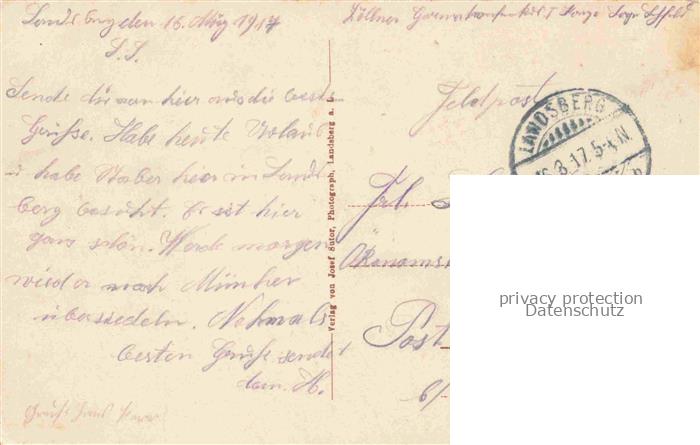 Landsberg den 16. März 1917
L. S.
Sende dir von hier aus die besten
Grüsse. Habe heute Urlaub
u habe Vater hier in Lands
berg besucht. Es ist hier
ganz schön. Werde morgen
wieder nach München
übersiedeln. Nochmals
besten Gruss sendet
dein H.
Verlag von Josef Sutor, Photograph, Landsberg a. L.
Zöllner
Feldpost
LANDSBERG
16.3.17.5-6.N.
Frl.
Ökonoms
Post
privacy protection
Datenschutz